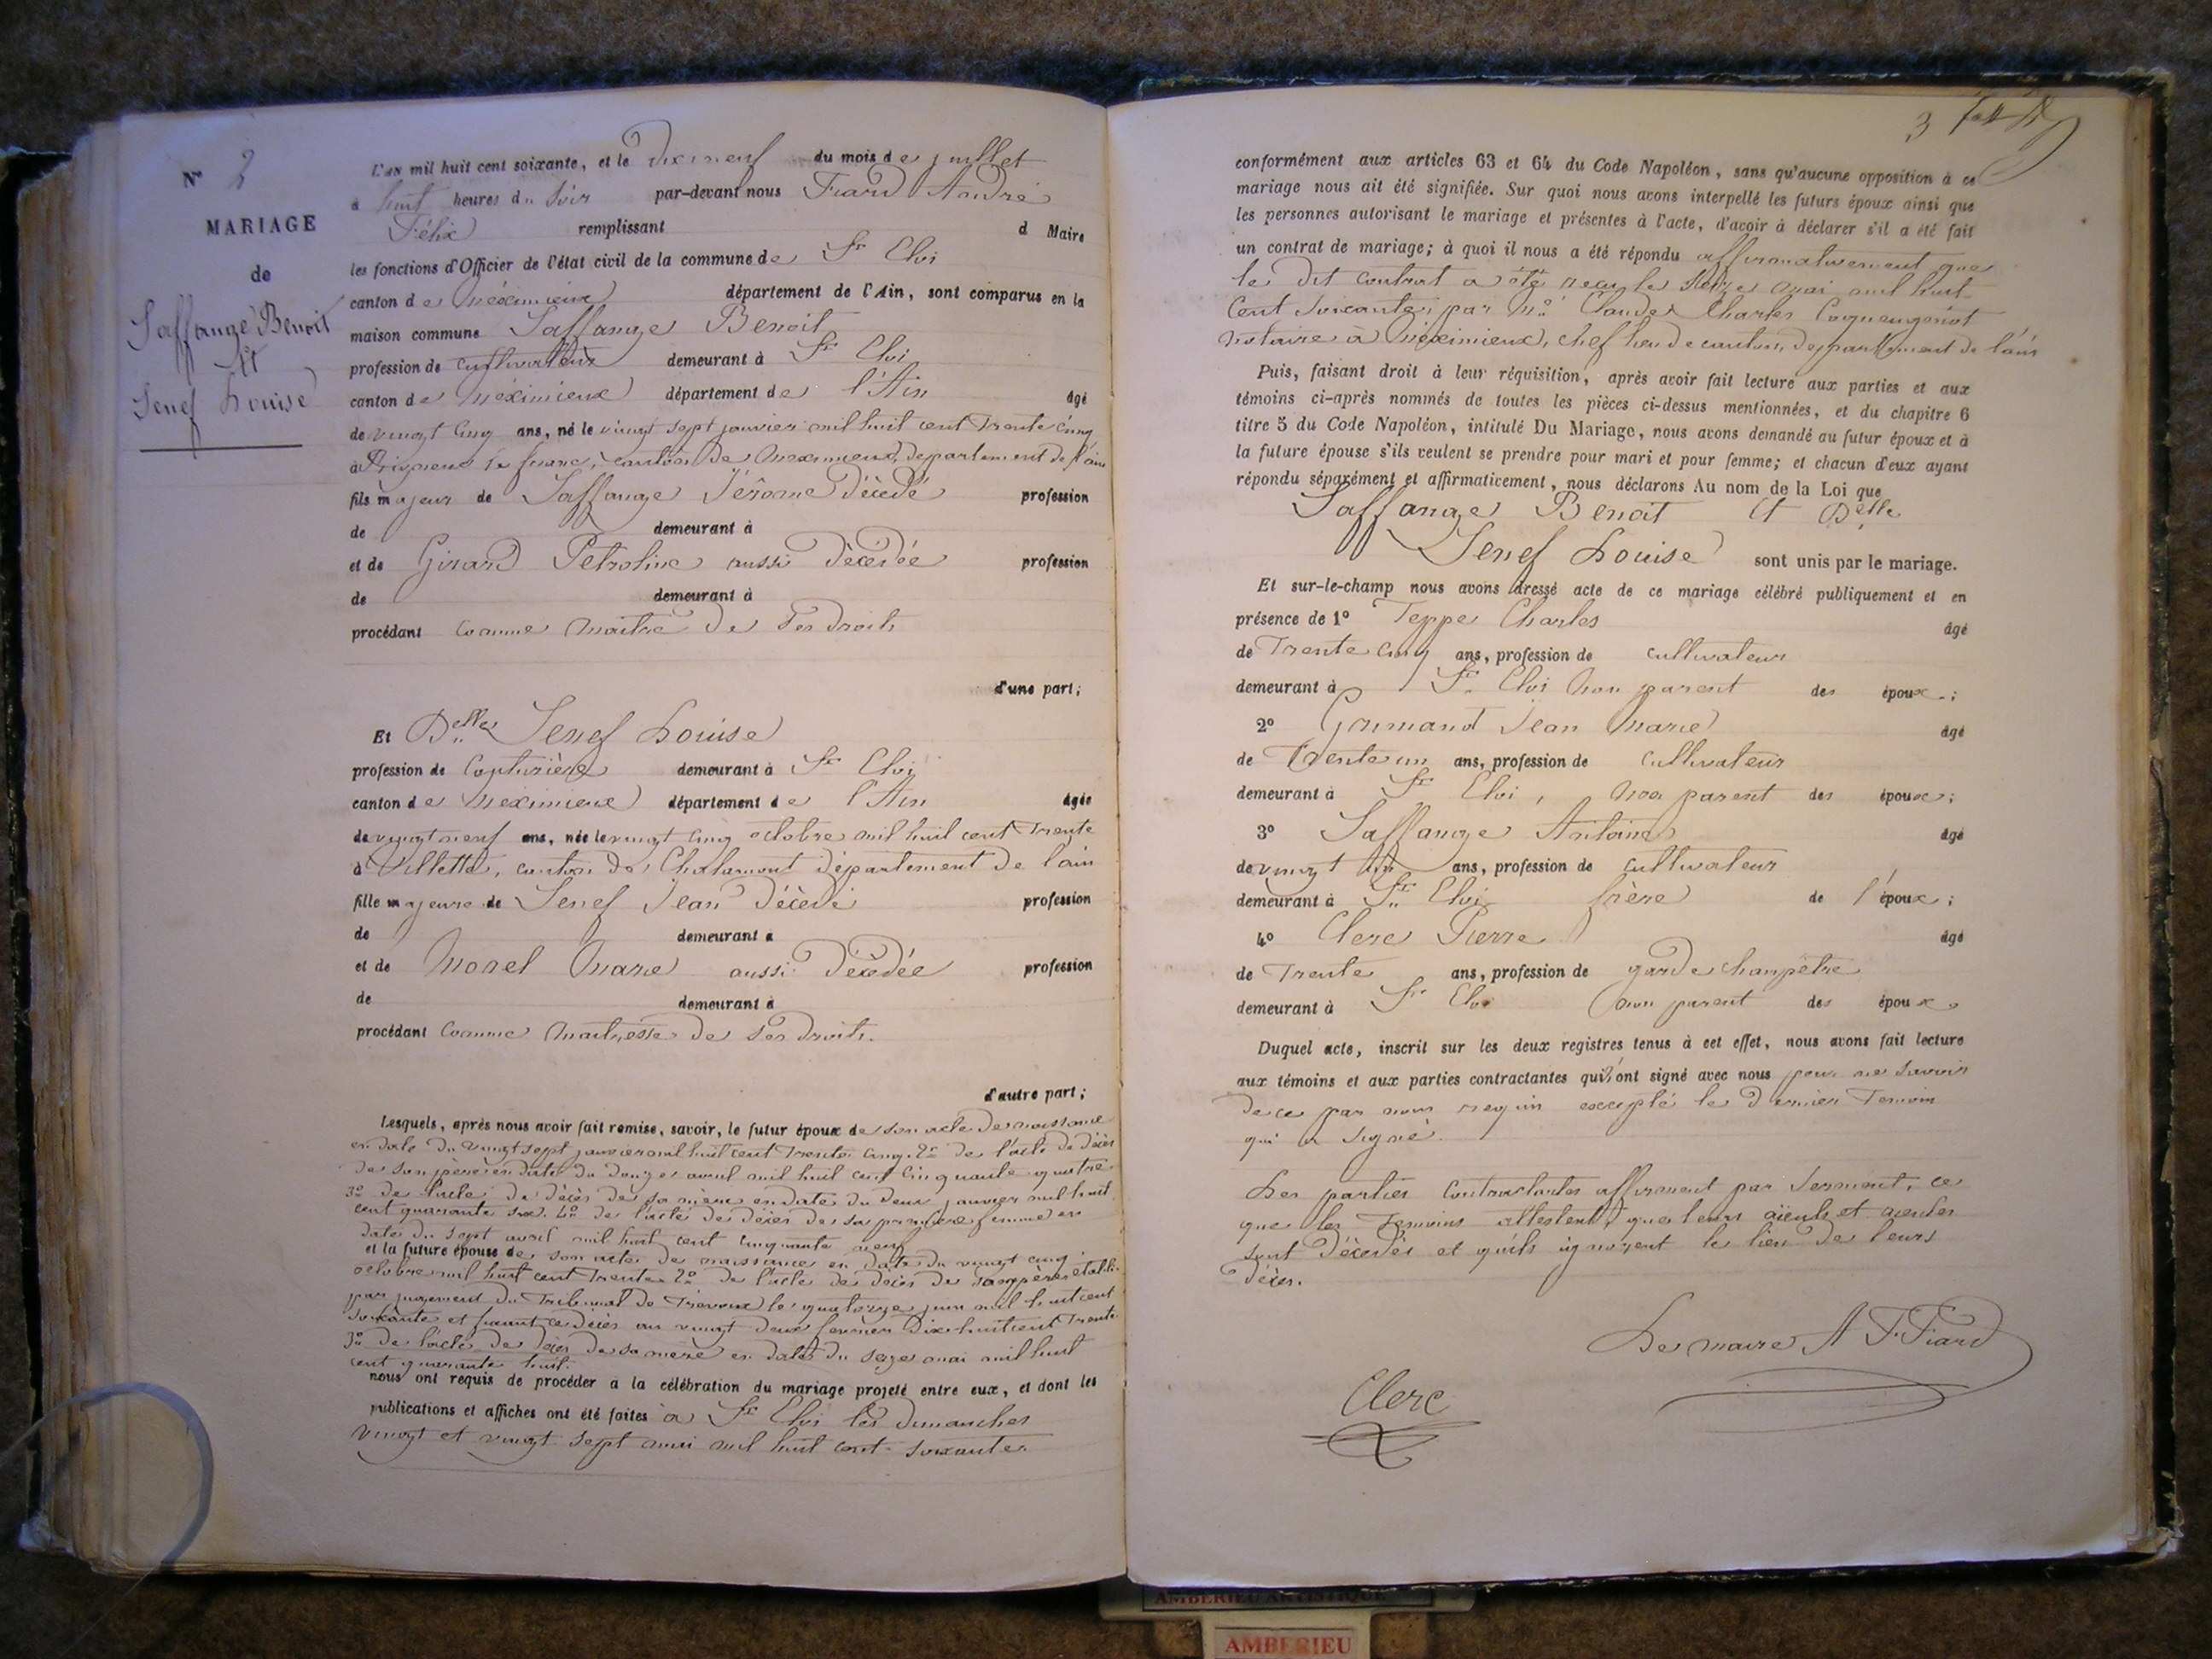 N° 2
MARIAGE
de
Saffange Benoit
et
Senef Louise
L'an mil huit cent soixante, et le dix neuf du mois de juillet
à huit heures du soir par-devant nous Fiard André
Félix remplissant d Maire
les fonctions d'Officier de l'état civil de la commune de St Eloi
canton de Méximieux département de l'Ain, sont comparus en la
maison commune Saffange Benoit
profession de cultivateur demeurant à St Eloi
canton de Méximieux département de l'Ain âgé
de vingt cinq ans, né le vingt sept janvier mil huit cent trente cinq
à le franc, canton de Meximieux, département de l'ain
fils majeur de Saffange Jérome décédé profession
de demeurant à
et de Girard Petroline aussi décédée profession
de demeurant à
procédant comme maître de ses droits
d'une part;
Et Delle Senef Louise
profession de Couturière demeurant à St Eloi
canton de Méximieux département de l'Ain âgée
de vingt neuf ans, née le vingt cinq octobre mil huit cent trente
à Villette, canton de Chalamont département de l'ain
fille majeure de Senef Jean décédé profession
de demeurant à
et de Morel Marie aussi décédée profession
de demeurant à
procédant comme maitresse de ses droits.
d'autre part;
Lesquels, après nous avoir fait remise, savoir, le futur époux de son acte de naissance
en date du vingt sept janvier mil huit cent trente cinq. 2° de l'acte de décès
de son père en date du douze avril mil huit cent cinquante quatre
3° de l'acte de décès de sa mère en date du deux janvier mil huit
cent quarante six. 4° de l'acte de décès de sa première femme en
date du sept avril mil huit cent cinquante neuf
et la future épouse de son acte de naissance en date du vingt cinq
octobre mil huit cent trente. 2° de l'acte de décès de son père établi
par jugement du Tribunal de Trévoux le quatorze juin mil huit cent
soixante et fixant ce décès au vingt deux février dix huit cent trente
3° de l'acte de décès de sa mère en date du seize mai mil huit
cent quarante huit.
nous ont requis de procéder à la célébration du mariage projeté entre eux, et dont les
publications et affiches ont été faites à St Eloi les dimanches
vingt et vingt sept mai mil huit cent soixante
3
conformément aux articles 63 et 64 du Code Napoléon, sans qu'aucune opposition à ce
mariage nous ait été signifiée. Sur quoi nous avons interpellé les futurs époux ainsi que
les personnes autorisant le mariage et présentes à l'acte, d'avoir à déclarer s'il a été fait
un contrat de mariage; à quoi il nous a été répondu affirmativement que
le dit contrat a été reçu le seize mai mil huit
cent soixante, par Me Claude Charles
notaire à Méximieux, chef lieu de canton, département de l'ain
Puis, faisant droit à leur réquisition, après avoir fait lecture aux parties et aux
témoins ci-après nommés de toutes les pièces ci-dessus mentionnées, et du chapitre 6
titre 5 du Code Napoléon, intitulé Du Mariage, nous avons demandé au futur époux et à
la future épouse s'ils veulent se prendre pour mari et pour femme; et chacun d'eux ayant
répondu séparément et affirmativement, nous déclarons Au nom de la Loi que
Saffange Benoit et Delle
Senef Louise sont unis par le mariage.
Et sur-le-champ nous avons dressé acte de ce mariage célébré publiquement et en
présence de 1° Teppe Charles âgé
de Trente cinq ans, profession de cultivateur
demeurant à St Eloi non parent des époux;
2° Gourmand Jean Marie âgé
de Trente un ans, profession de Cultivateur
demeurant à St Eloi, non parent des époux;
3° Saffange Antoine âgé
de vingt ans, profession de cultivateur
demeurant à St Eloi frère de l'époux;
4° Clerc Pierre âgé
de Trente ans, profession de garde champêtre
demeurant à St Eloi non parent des époux.
Duquel acte, inscrit sur les deux registres tenus à cet effet, nous avons fait lecture
aux témoins et aux parties contractantes qui n'ont signé avec nous pour ne savoir
de ce par nous requis excepté le dernier témoin
qui a signé.
Les parties contractantes affirment par serment, ce
que les témoins attestent, que leurs aïeuls et aïeules
sont décédés et qu'ils ignorent le lieu de leurs
décès.
Le maire A F. Fiard
Clerc
AMBERIEU ARTISTIQUE
AMBERIEU